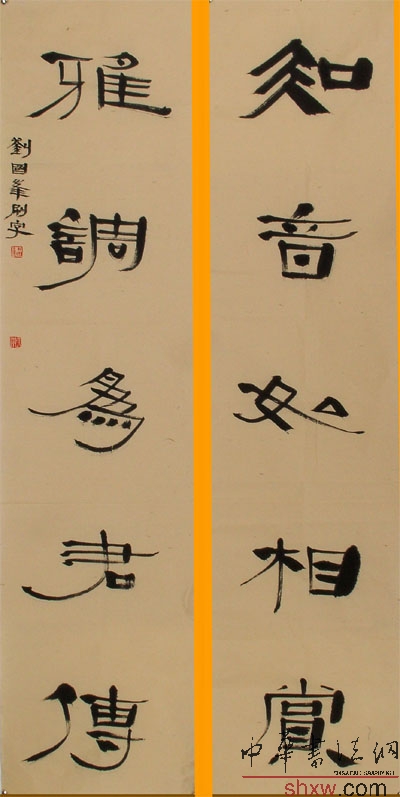 知音如相賞
雅調為君傳
劉國峯刷字
中華書法網
shxw.com